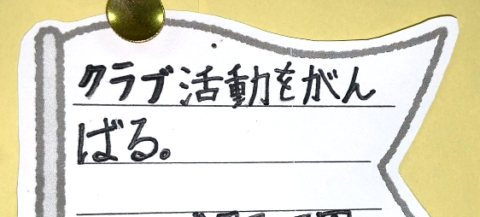 クラブ活動をがん
ばる。